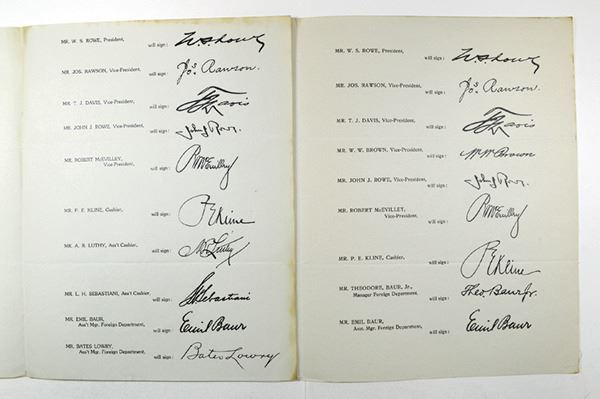 MR. W. S. ROWE, President,
will sign: W. S. Rowe
MR. JOS. RAWSON, Vice-President,
will sign: Jos. Rawson.
MR. T. J. DAVIS, Vice-President,
will sign: T J Davis
MR. JOHN J. ROWE, Vice-President,
will sign: John J Rowe.
MR. ROBERT McEVILLEY,
Vice-President,
will sign: R McEvilley
MR. P. E. KLINE, Cashier,
will sign: P E Kline
MR. A. R. LUTHY, Ass't Cashier,
will sign: Luthy
MR. L. H. SEBASTIANI, Ass't Cashier,
will sign: Sebastiani
MR. EMIL BAUR,
Ass't Mgr. Foreign Department,
will sign: Emil Baur
MR. BATES LOWRY,
Ass't Mgr. Foreign Department,
will sign: Bates Lowry
MR. W. S. ROWE, President,
will sign: W. S. Rowe
MR. JOS. RAWSON, Vice-President,
will sign: Jos. Rawson.
MR. T. J. DAVIS, Vice-President,
will sign: T J Davis
MR. W. W. BROWN, Vice-President,
will sign: W W Brown
MR. JOHN J. ROWE, Vice-President,
will sign: John J Rowe.
MR. ROBERT McEVILLEY,
Vice-President,
will sign: R McEvilley
MR. P. E. KLINE, Cashier,
will sign: P E Kline
MR. THEODORE BAUR, Jr.,
Manager Foreign Department,
will sign: Theo. Baur Jr.
MR. EMIL BAUR,
Asst. Mgr. Foreign Department,
will sign: Emil Baur